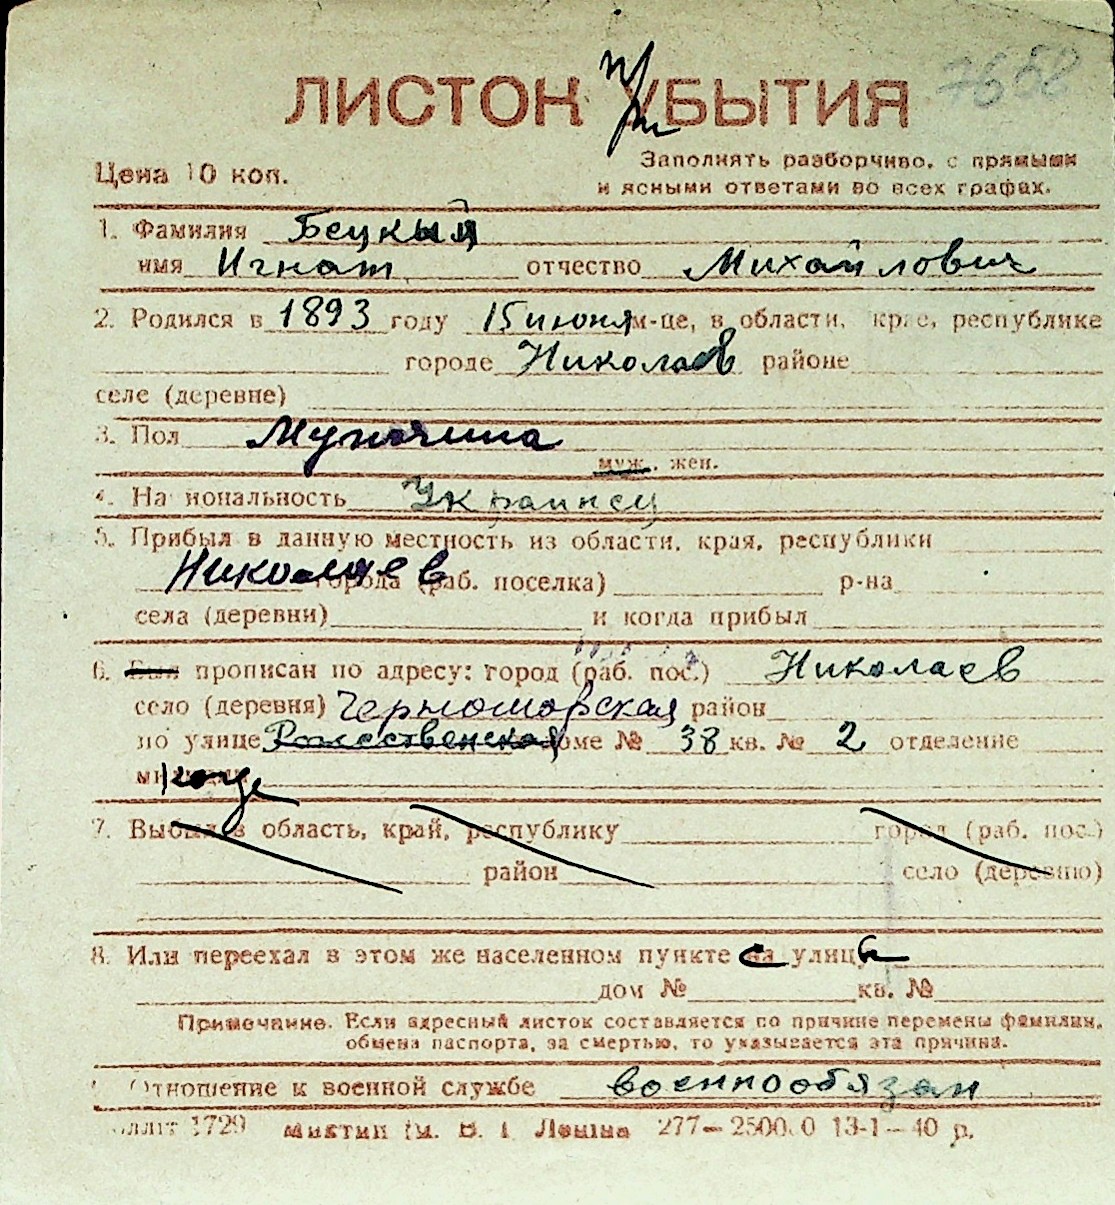 7658
ЛИСТОН УБЫТИЯ
Цена 10 коп.
Заполнять разборчиво, с прямыми
и ясными ответами во всех графах.
1. Фамилия Бецкый
имя Игнат отчество Михайлович
2. Родился в 1893 году 15 июня м-це, в области, крае, республике
городе Николаев районе
селе (деревне)
3. Пол Мужчина
муж., жен.
4. На иональность Украинец
5. Прибыл в данную местность из области, края, республики
Николаев города (раб. поселка) р-на
села (деревни) и когда прибыл
6. Был прописан по адресу: город (раб. пос.) Николаев
село (деревня) Черноморская район
по улице Рожественская доме № 38 кв. № 2 отделение
милиции
7. Выбыл в область, край, республику город (раб. пос.)
район село (деревню)
8. Или переехал в этом же населенном пункте на улицу
дом № кв. №
Примечание. Если адресный листок составляется по причине перемены фамилии,
обмена паспорта, за смертью, то указывается эта причина.
Отношение к военной службе военнообязан
1729 277—2500.0 13-1—40 р.